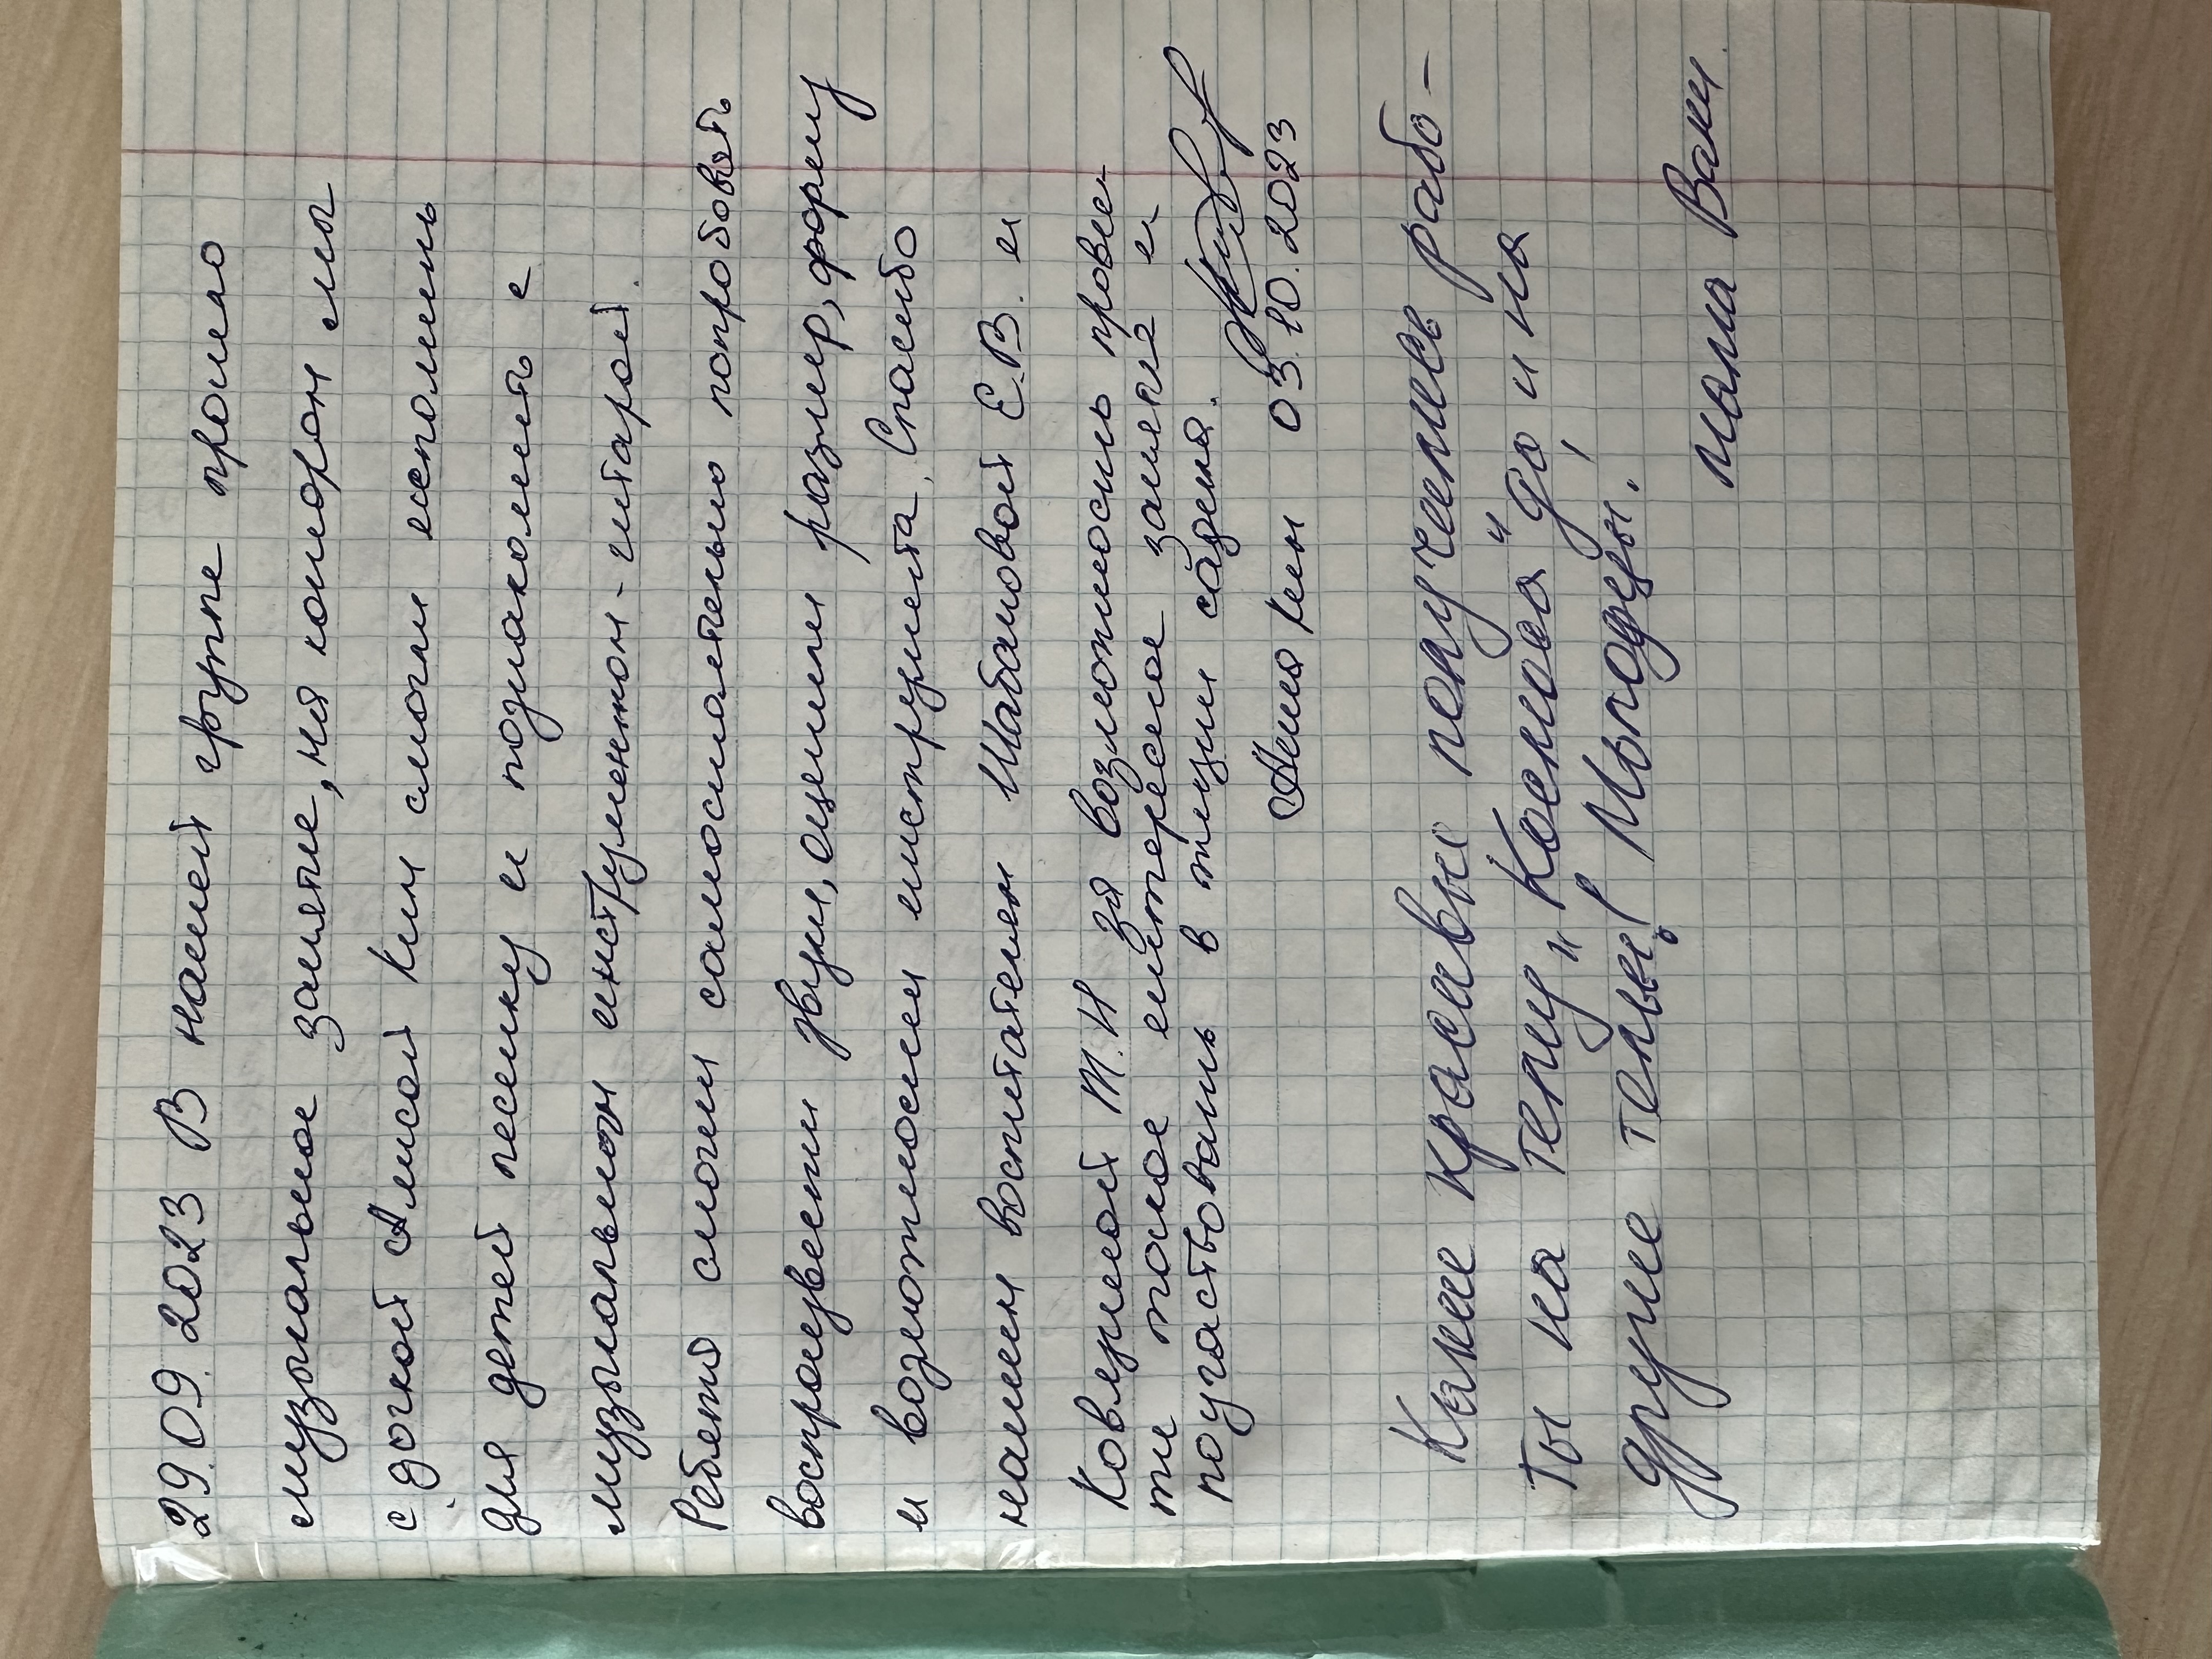 29.09.2023 В нашей групе прошло
музыкальное занятие, на котором мы
с дочкой Алисой Ким смогли исполнить
для детей песенку и познакомить с
музыкальном инструментом - гитарой.
Ребята смогли самостоятельно попробовать
воспроизвести звуки, оценили размер, форму
и возможности инструмента. Спасибо
нашим воспитателям Шабановой Е.В. и
Ковязиной Т.Н за возможность провес-
ти такое интересное занятие и
поучаствовать в жизни садика.
Анна Ким 03.10.2023
Какие красивые получились рабо-
ты на тему "Космоса" да, и на
другие темы! Молодцы.
мама Вали